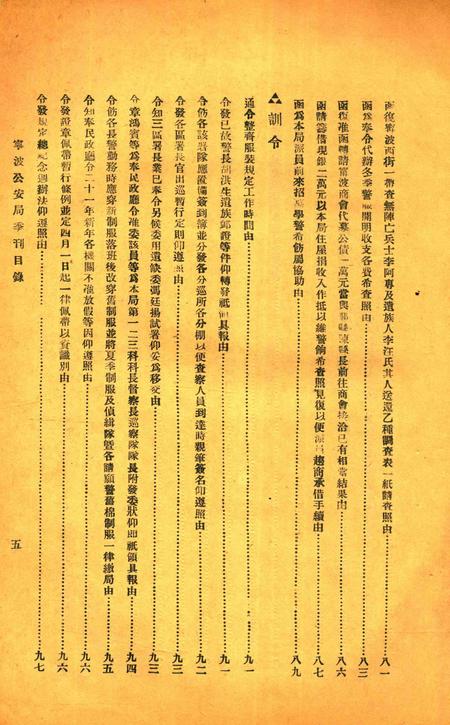 函復寧波西街一帶查無陣亡兵士李阿專及遺族人李汪氏其人送還乙種調查表一紙請查照由……八一
函為奉令代辦冬季警服開明收支各費希查照由……八三
函復准函轉請寧波商會代募公債二萬元當與縣長前往商會接洽已有相當結果由……八六
函請籌借現銀二萬元以本局住屋捐收入作抵以維警餉希查照見復以便派員趨商承借手續由……八七
函為本局派員前來招學警希飭屬協助由……八九
訓令
通令整齊服裝規定工作時間由……九一
令發已故警長胡洪生遺族卹費等件仰轉發祗領具報由……九一
令飭各該署隊應置備簽到簿並分發各分巡所各分棚以便查察人員到達時親筆簽名仰遵照由……九二
令發各區署長官出巡暫行定則仰遵照由……九三
令知三區署長業已奉令另候委用遺缺委馮廷揚試署仰妥為移交由……九三
令章鴻賓等為奉民政廳令准委該員等為本局第一二三科科長督察長巡察隊隊長附發委狀仰即祗領具報由……九四
令飭各長警勤務時應穿新制服落班後改穿舊制服並將夏季制服及偵緝隊暨各請願警舊棉制服一律繳局由……九五
令知奉民政廳令二十一年新年各機關不准放假等因仰遵照由……九六
令發證章佩帶暫行條例並定四月一日起一律佩帶以資識別由……九六
令發規定總理紀念週辦法仰遵照由……九七
寧波公安局季刊目錄
五